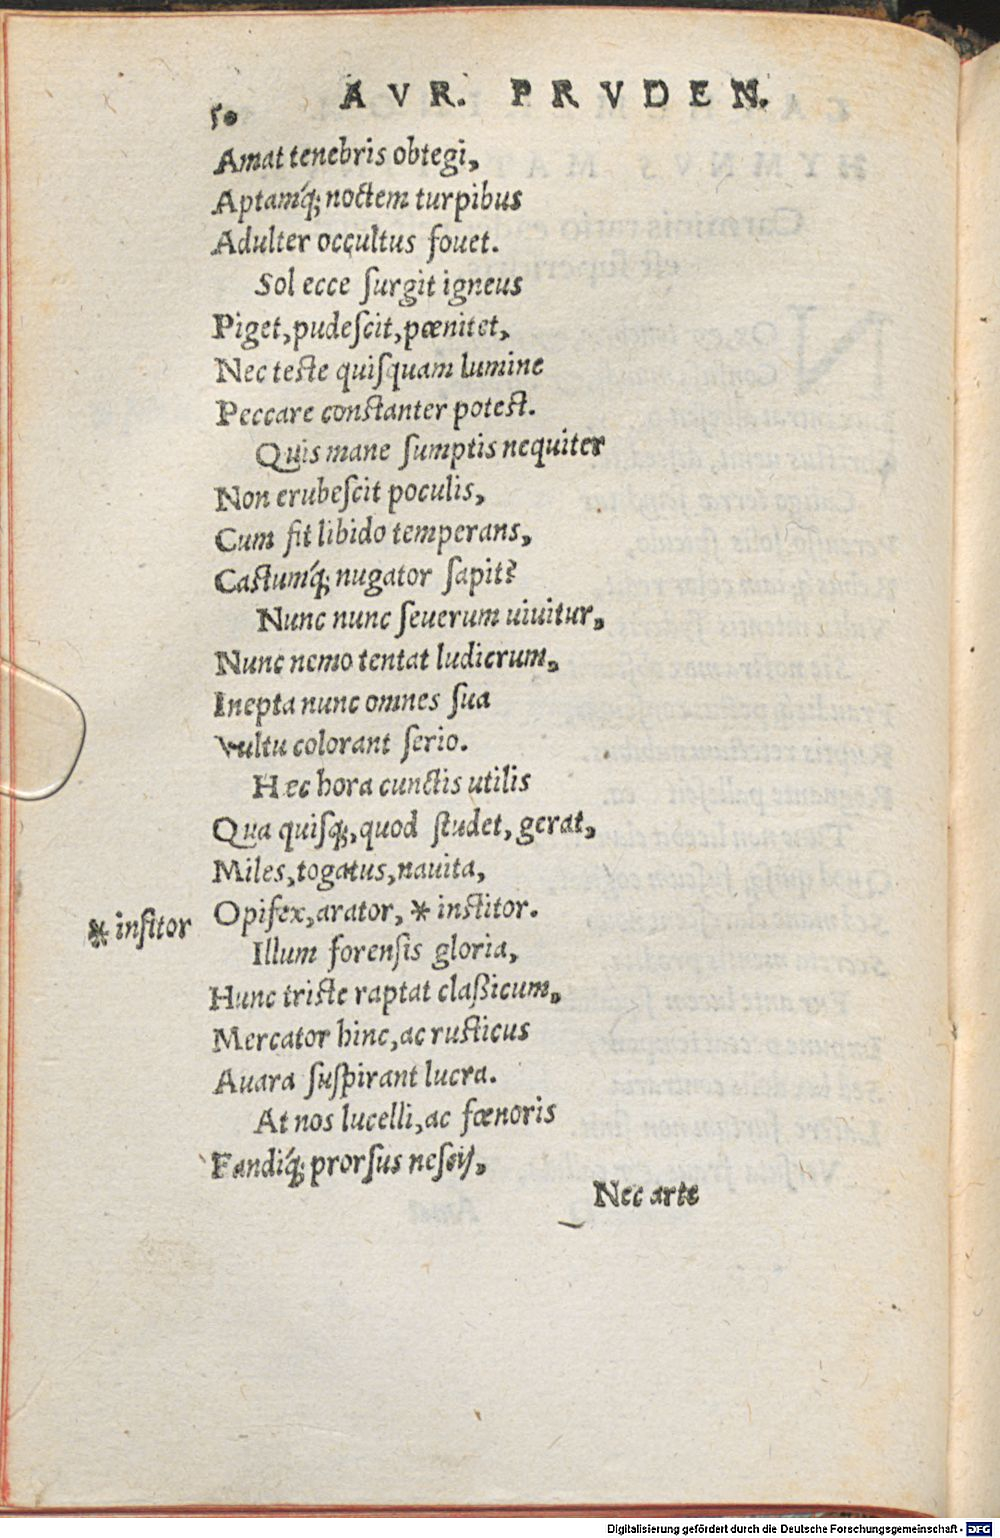 AVR. PRVDEN.
50
Amat tenebris obtegi,
Aptamq́; noctem turpibus
Adulter occultus fouet.
Sol ecce ſurgit igneus
Piget, pudeſcit, pœnitet,
Nec teſte quiſquam lumine
Peccare conſtanter poteſt.
Quis mane ſumptis nequiter
Non erubeſcit poculis,
Cum fit libido temperans,
Caſtumq́; nugator ſapit?
Nunc nunc ſeuerum uiuitur,
Nunc nemo tentat ludicrum,
Inepta nunc omnes ſua
Vultu colorant ſerio.
Hæc hora cunctis utilis
Qua quiſq;, quod ſtudet, gerat,
Miles, togatus, nauita,
Opifex, arator, * inſtitor.
* inſitor
Illum forenſis gloria,
Hunc triſte raptat claßicum,
Mercator hinc, ac ruſticus
Auara ſuſpirant lucra.
At nos lucelli, ac fœnoris
Fandiq́; prorſus neſcij,
Nec arte
Digitalisierung gefördert durch die Deutsche Forschungsgemeinschaft - DFG